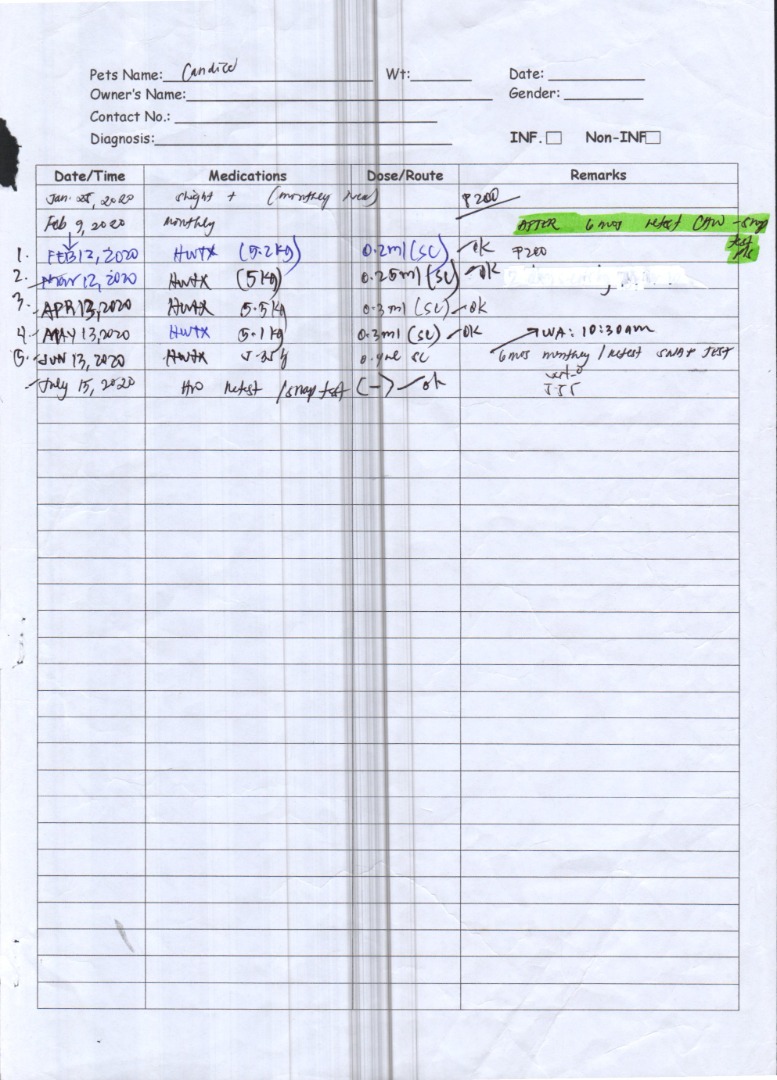 Pets Name: Candice Wt: Date:
Owner's Name: Gender:
Contact No.:
Diagnosis: INF. Non-INF
Date/Time Medications Dose/Route Remarks
Jan. 25, 2020 slight + (monthly ₱200
Feb 9, 2020 monthly AFTER 6 mos retest - snap test
1. FEB 13, 2020 HWTX (5.2kg) 0.2ml (SC) ok ₱200
2. 12, 2020 HWTX (5kg) 0.25ml (SC) ok
3. APR 13, 2020 HWTX 5.5kg 0.3ml (SC) ok
4. MAY 13, 2020 HWTX 5.1kg 0.3ml (SC) ok → WA: 10:30am
5. JUN 13, 2020 HWTX SC 6 mos monthly / retest SNAP TEST
July 15, 2020 retest / snap test (-) ok